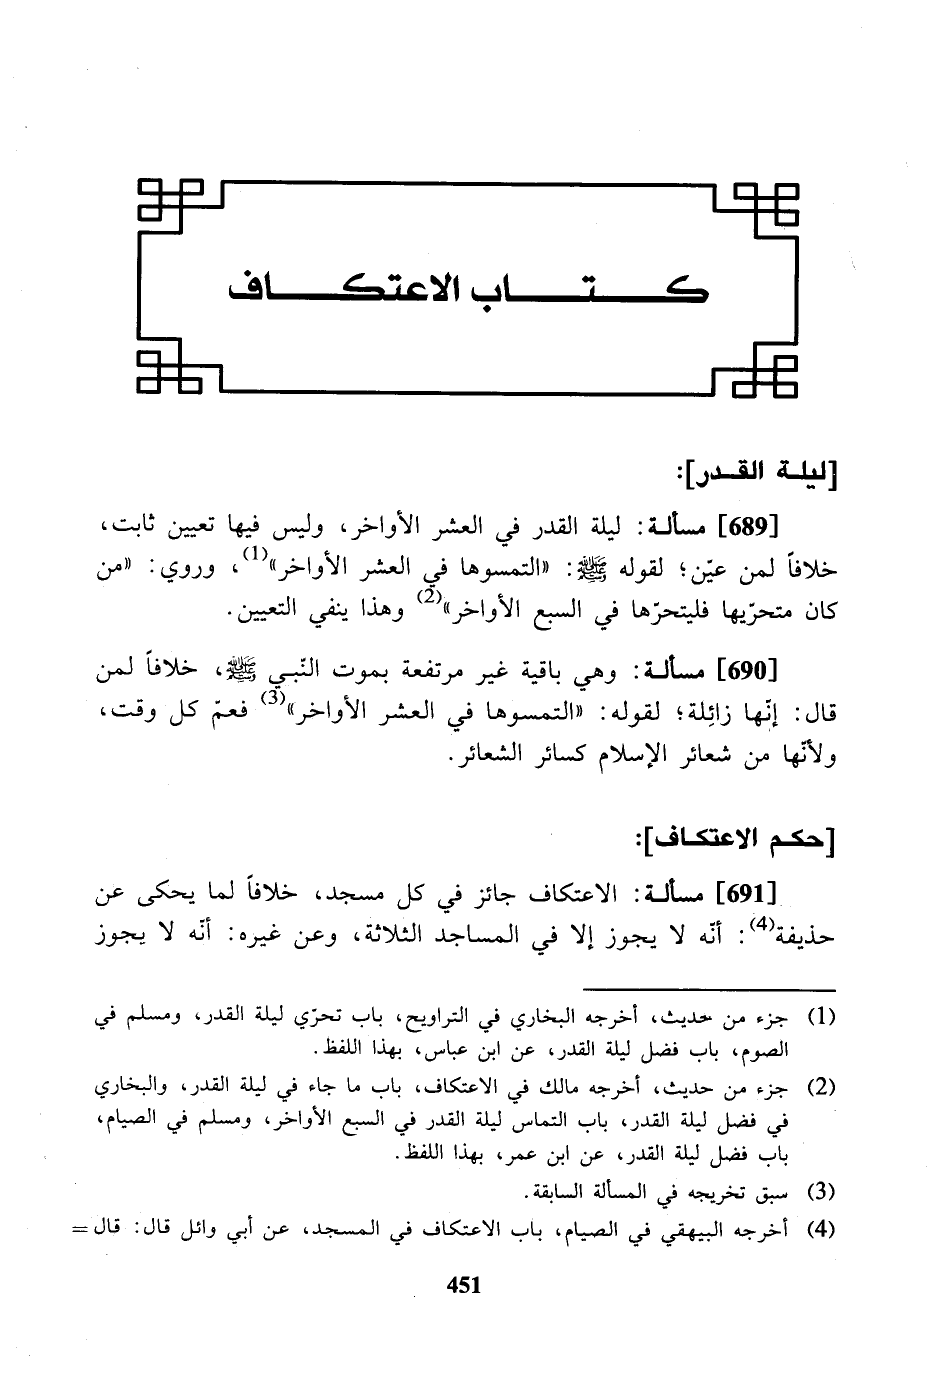 كتاب الاعتكاف
[ليلة القدر]:
[689] مسألة: ليلة القدر في العشر الأواخر، وليس فيها تعيين ثابت،
خلافاً لمن عيّن؛ لقوله ﷺ: «التمسوها في العشر الأواخر»(1)، وروي: «من
كان متحرّيها فليتحرّها في السبع الأواخر»(2) وهذا ينفي التعيين.
[690] مسألة: وهي باقية غير مرتفعة بموت النّبي ﷺ، خلافاً لمن
قال: إنّها زائلة؛ لقوله: «التمسوها في العشر الأواخر»(3) فعمّ كل وقت،
ولأنّها من شعائر الإسلام كسائر الشعائر.
[حكم الاعتكاف]:
[691] مسألة: الاعتكاف جائز في كل مسجد، خلافاً لما يحكى عن
حذيفة(4): أنّه لا يجوز إلا في المساجد الثلاثة، وعن غيره: أنّه لا يجوز
(1) جزء من حديث، أخرجه البخاري في التراويح، باب تحرّي ليلة القدر، ومسلم في
الصوم، باب فضل ليلة القدر، عن ابن عباس، بهذا اللفظ.
(2) جزء من حديث، أخرجه مالك في الاعتكاف، باب ما جاء في ليلة القدر، والبخاري
في فضل ليلة القدر، باب التماس ليلة القدر في السبع الأواخر، ومسلم في الصيام،
باب فضل ليلة القدر، عن ابن عمر، بهذا اللفظ.
(3) سبق تخريجه في المسألة السابقة.
(4) أخرجه البيهقي في الصيام، باب الاعتكاف في المسجد، عن أبي وائل قال: قال =
451